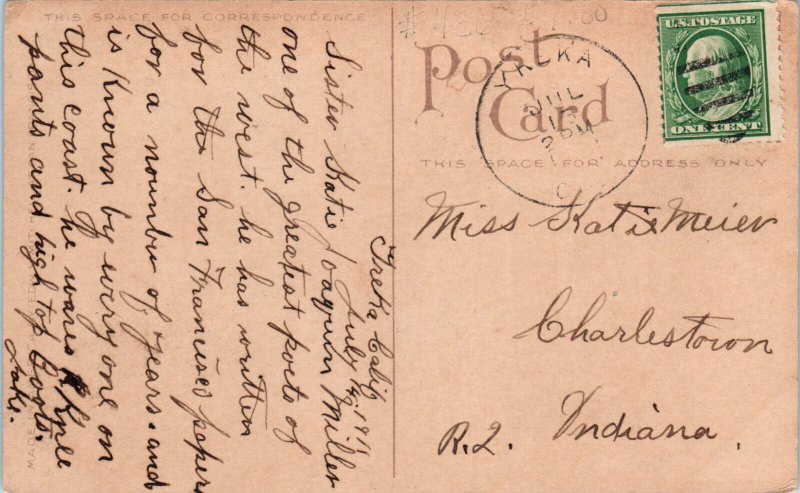 THIS SPACE FOR CORRESPONDENCE
Yreka Calif
July 1911
Sister Katie Joaquin Miller
one of the greatest poets of
the west. he has written
for the San Francisco papers
for a nounber of years. and
is Known by every one on
this coast. he wares Knee
pants and high top Boots.
Jake.
Post Card
THIS SPACE FOR ADDRESS ONLY
YREKA
JUL
U.S. POSTAGE
ONE CENT
Miss Katie Meier
Charlestown
R.2. Indiana.